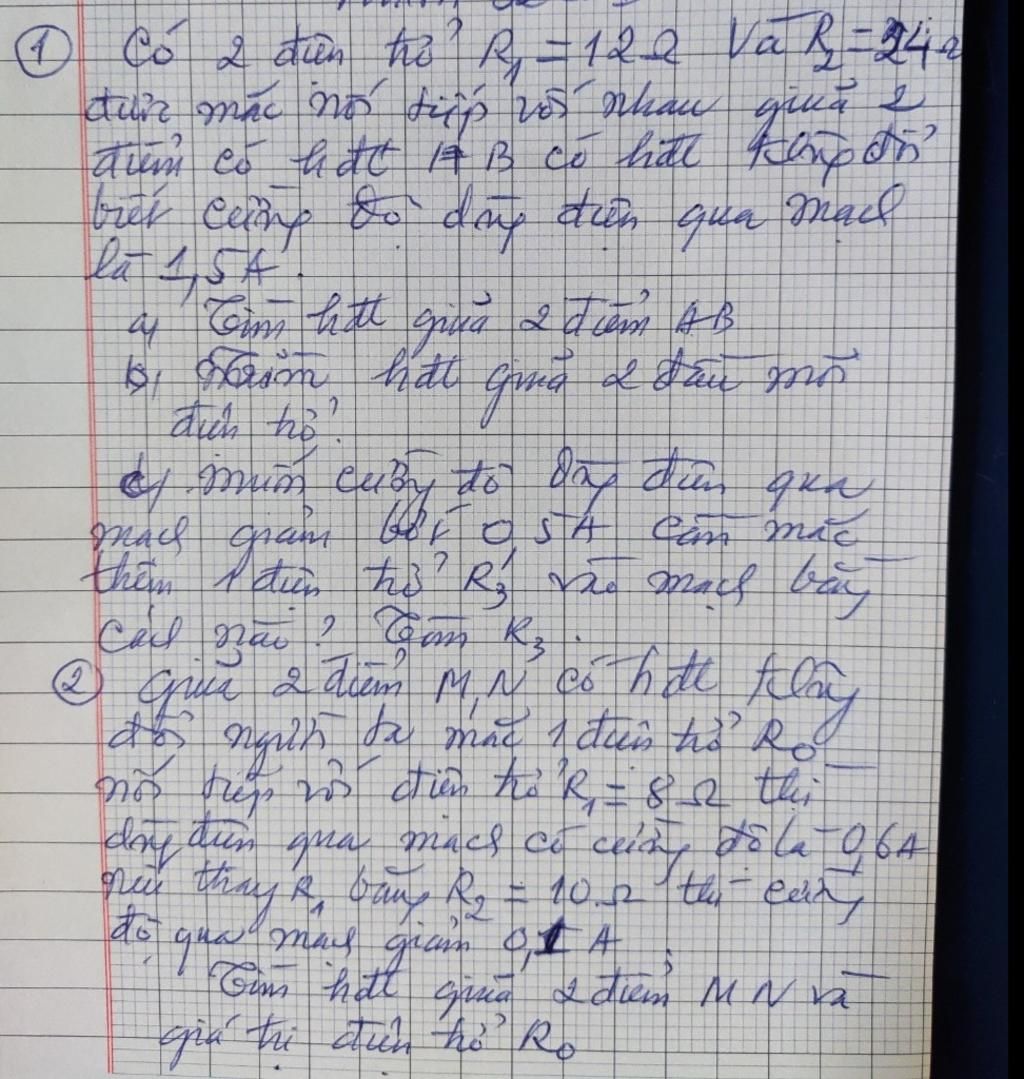 ① Có 2 điện trở R₁ = 12Ω Và R₂ = 24Ω
được mắc nối tiếp với nhau giữa 2
điểm có hđt AB có hđt không đổi
biết cường độ dòng điện qua mạch
là 1,5A.
a) Tìm hđt giữa 2 điểm AB
b) Tìm hđt giữa 2 đầu mỗi
điện trở.
c) muốn cường độ dòng điện qua
mạch giảm bớt 0,5A cần mắc
thêm 1 điện trở R₃ vào mạch bằng
cách nào? Tìm R₃.
② Giữa 2 điểm M,N có hđt không
đổi người ta mắc 1 điện trở R₀
nối tiếp với điện trở R₁ = 8Ω thì
dòng điện qua mạch có cường độ là 0,6A
nếu thay R₁ bằng R₂ = 10Ω thì cường
độ qua mạch giảm 0,1A.
Tìm hđt giữa 2 điểm M N và
giá trị điện trở R₀